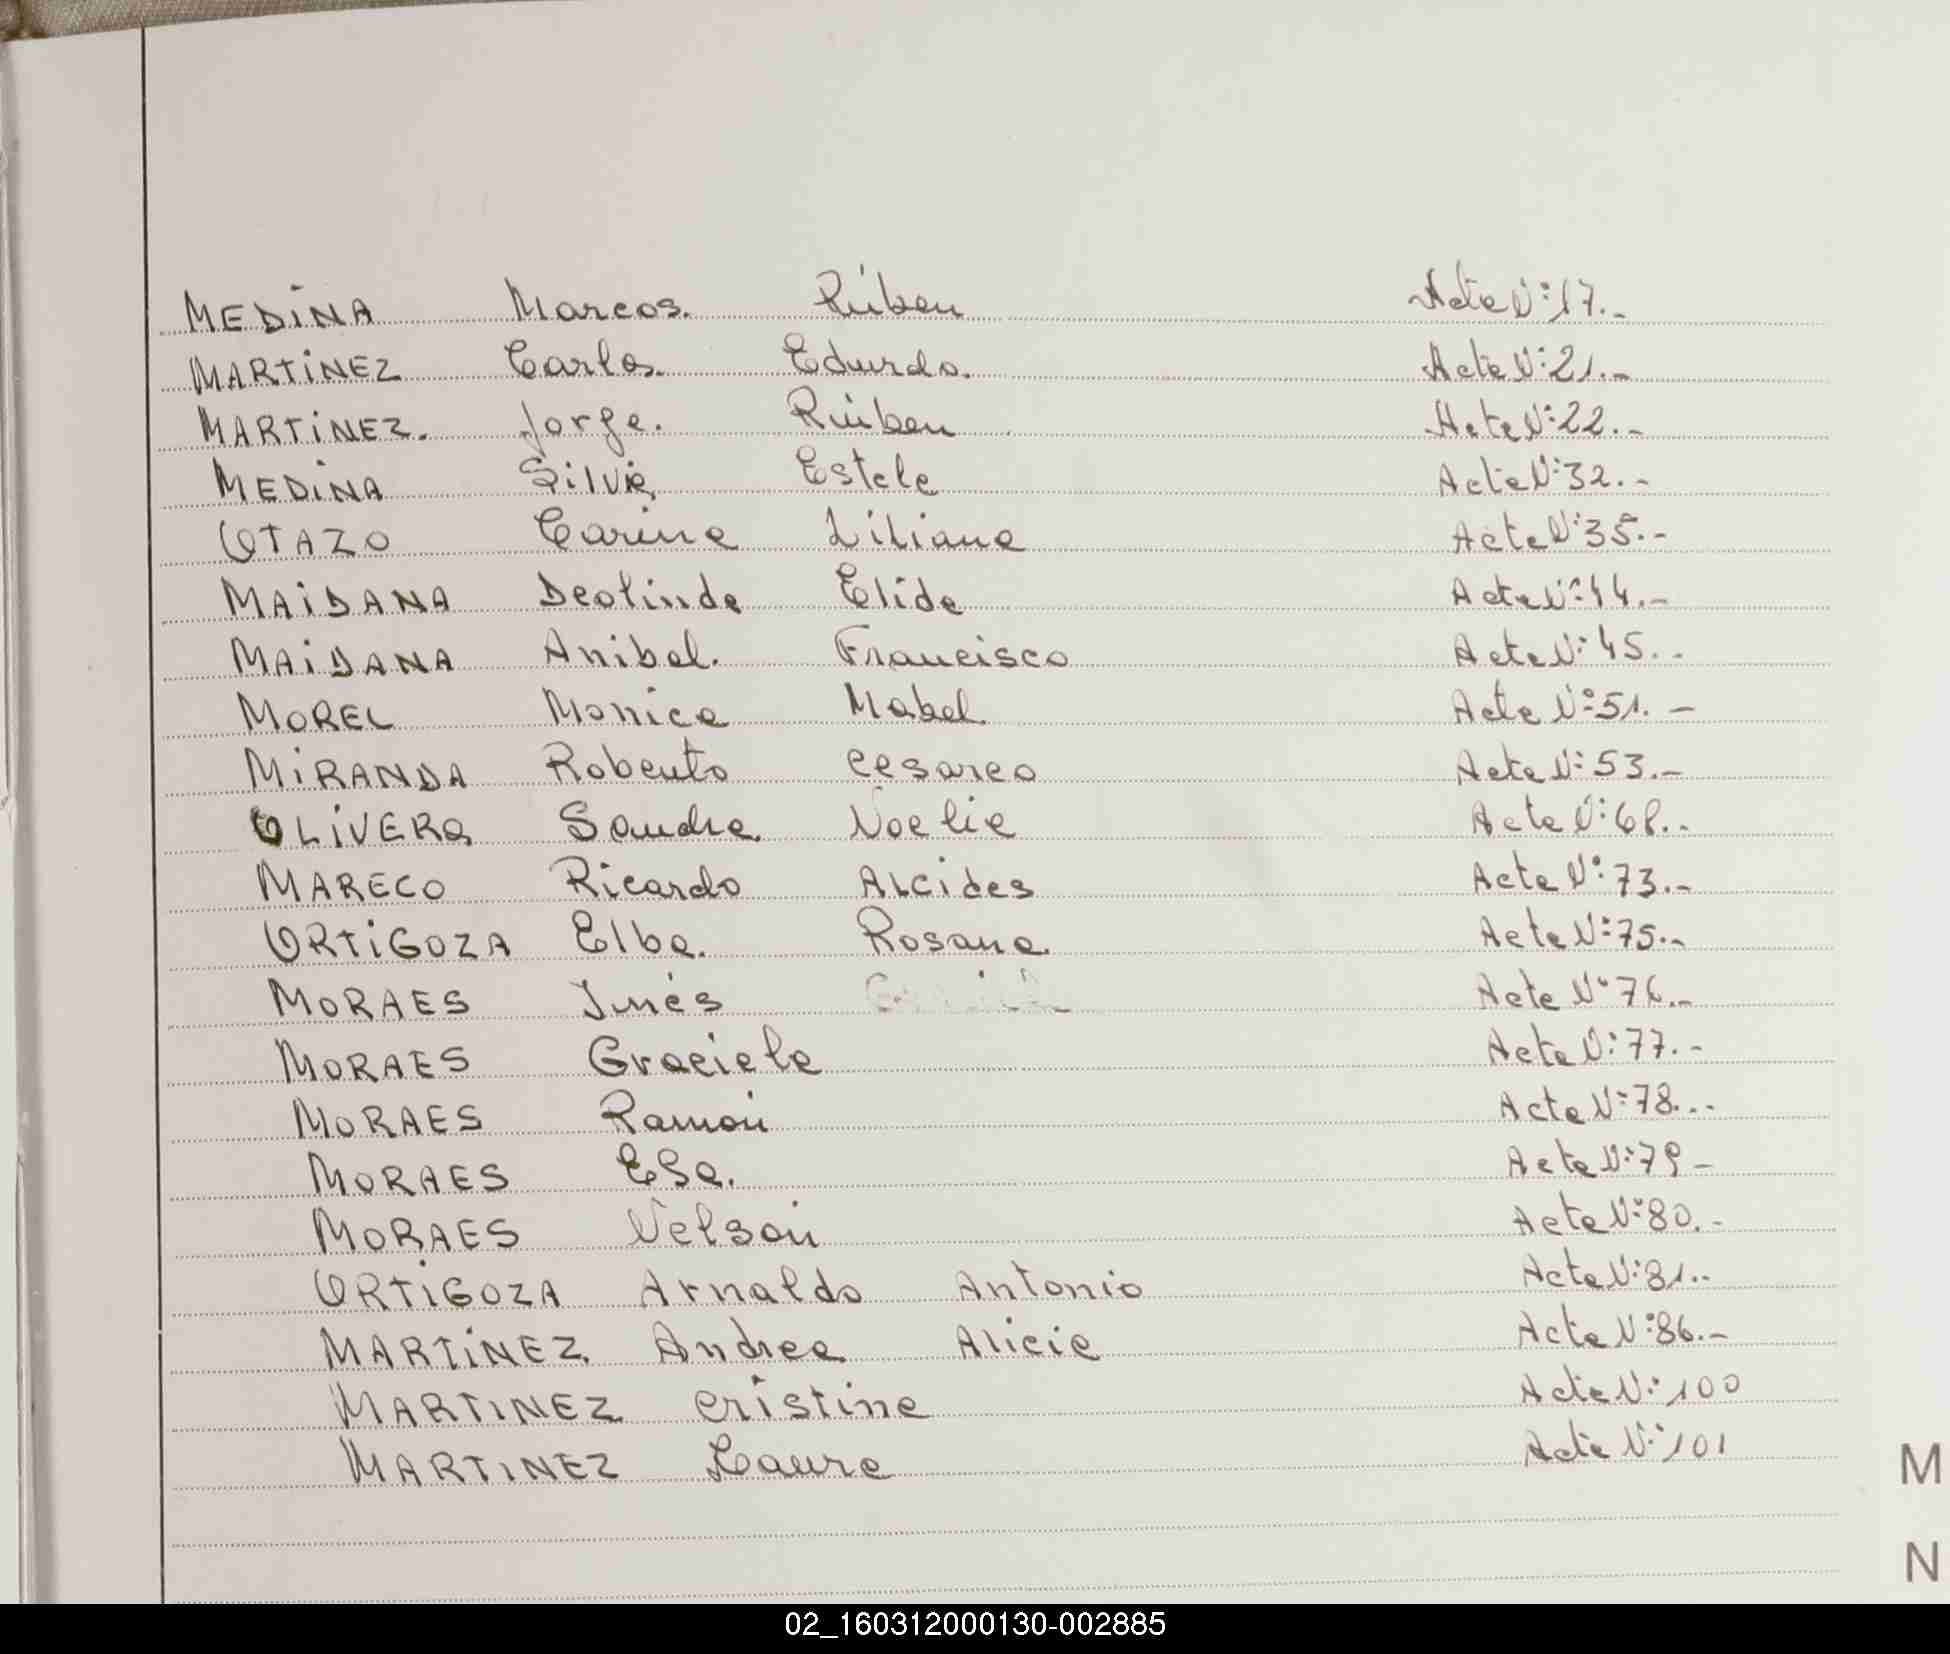 MEDINA Marcos. Rúben Acta Nº: 17.-
MARTINEZ Carlos. Edurdo. Acta Nº: 21.-
MARTINEZ. Jorge. Rúben Acta Nº: 22.-
MEDINA Silvia Estela Acta Nº: 32.-
OTAZO Carina Liliana Acta Nº: 35.-
MAIDANA Deolinda Elida Acta Nº: 44.-
MAIDANA Anibal. Francisco Acta Nº: 45.-
MOREL Monica Mabel Acta Nº: 51.-
MIRANDA Roberto Cesareo Acta Nº: 53.-
OLIVERA Sandra Noelia Acta Nº: 68.-
MARECO Ricardo Alcides Acta Nº: 73.-
ORTIGOZA Elba. Rosana. Acta Nº: 75.-
MORAES Inés Acta Nº 76.-
MORAES Graciela Acta Nº: 77.-
MORAES Ramón Acta Nº: 78.-
MORAES Acta Nº: 79-
MORAES Nelson Acta Nº: 80.-
ORTIGOZA Arnaldo Antonio Acta Nº: 81.-
MARTINEZ. Andrea Alicia Acta Nº: 86.-
MARTINEZ Cristina Acta Nº: 100
MARTINEZ Laura Acta Nº: 101
M
N
02_160312000130-002885